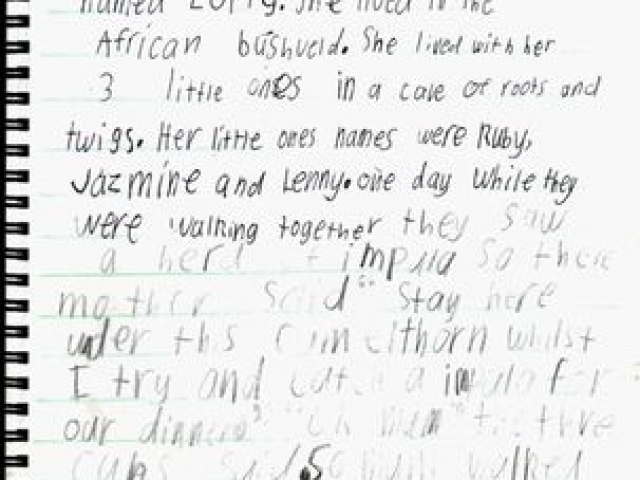 named Zorry. She lived in the
African bushveld. She lived with her
3 little ones in a cave of roots and
twigs. Her little ones names were Ruby,
Jazmine and Lenny. one day while they
were walking together they saw
a herd impala so there
mother said" stay here
under this camelthorn whilst
I try and catch a impala for
our dinner" "oh mum" the three
cubs said So mum walked